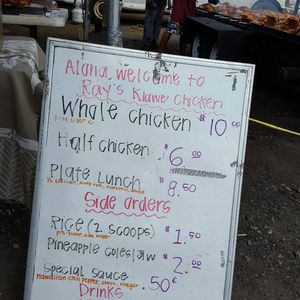 Alana, welcome to
Ray's Kiawe Chicken
Whole chicken $10.50
Half chicken $6.00
Plate Lunch $8.50
Side orders
Rice (2 scoops) $1.50
Pineapple coleslaw $2.00
Special sauce .50¢
Hawaiian chili pepper, shoyu, vinegar
Drinks